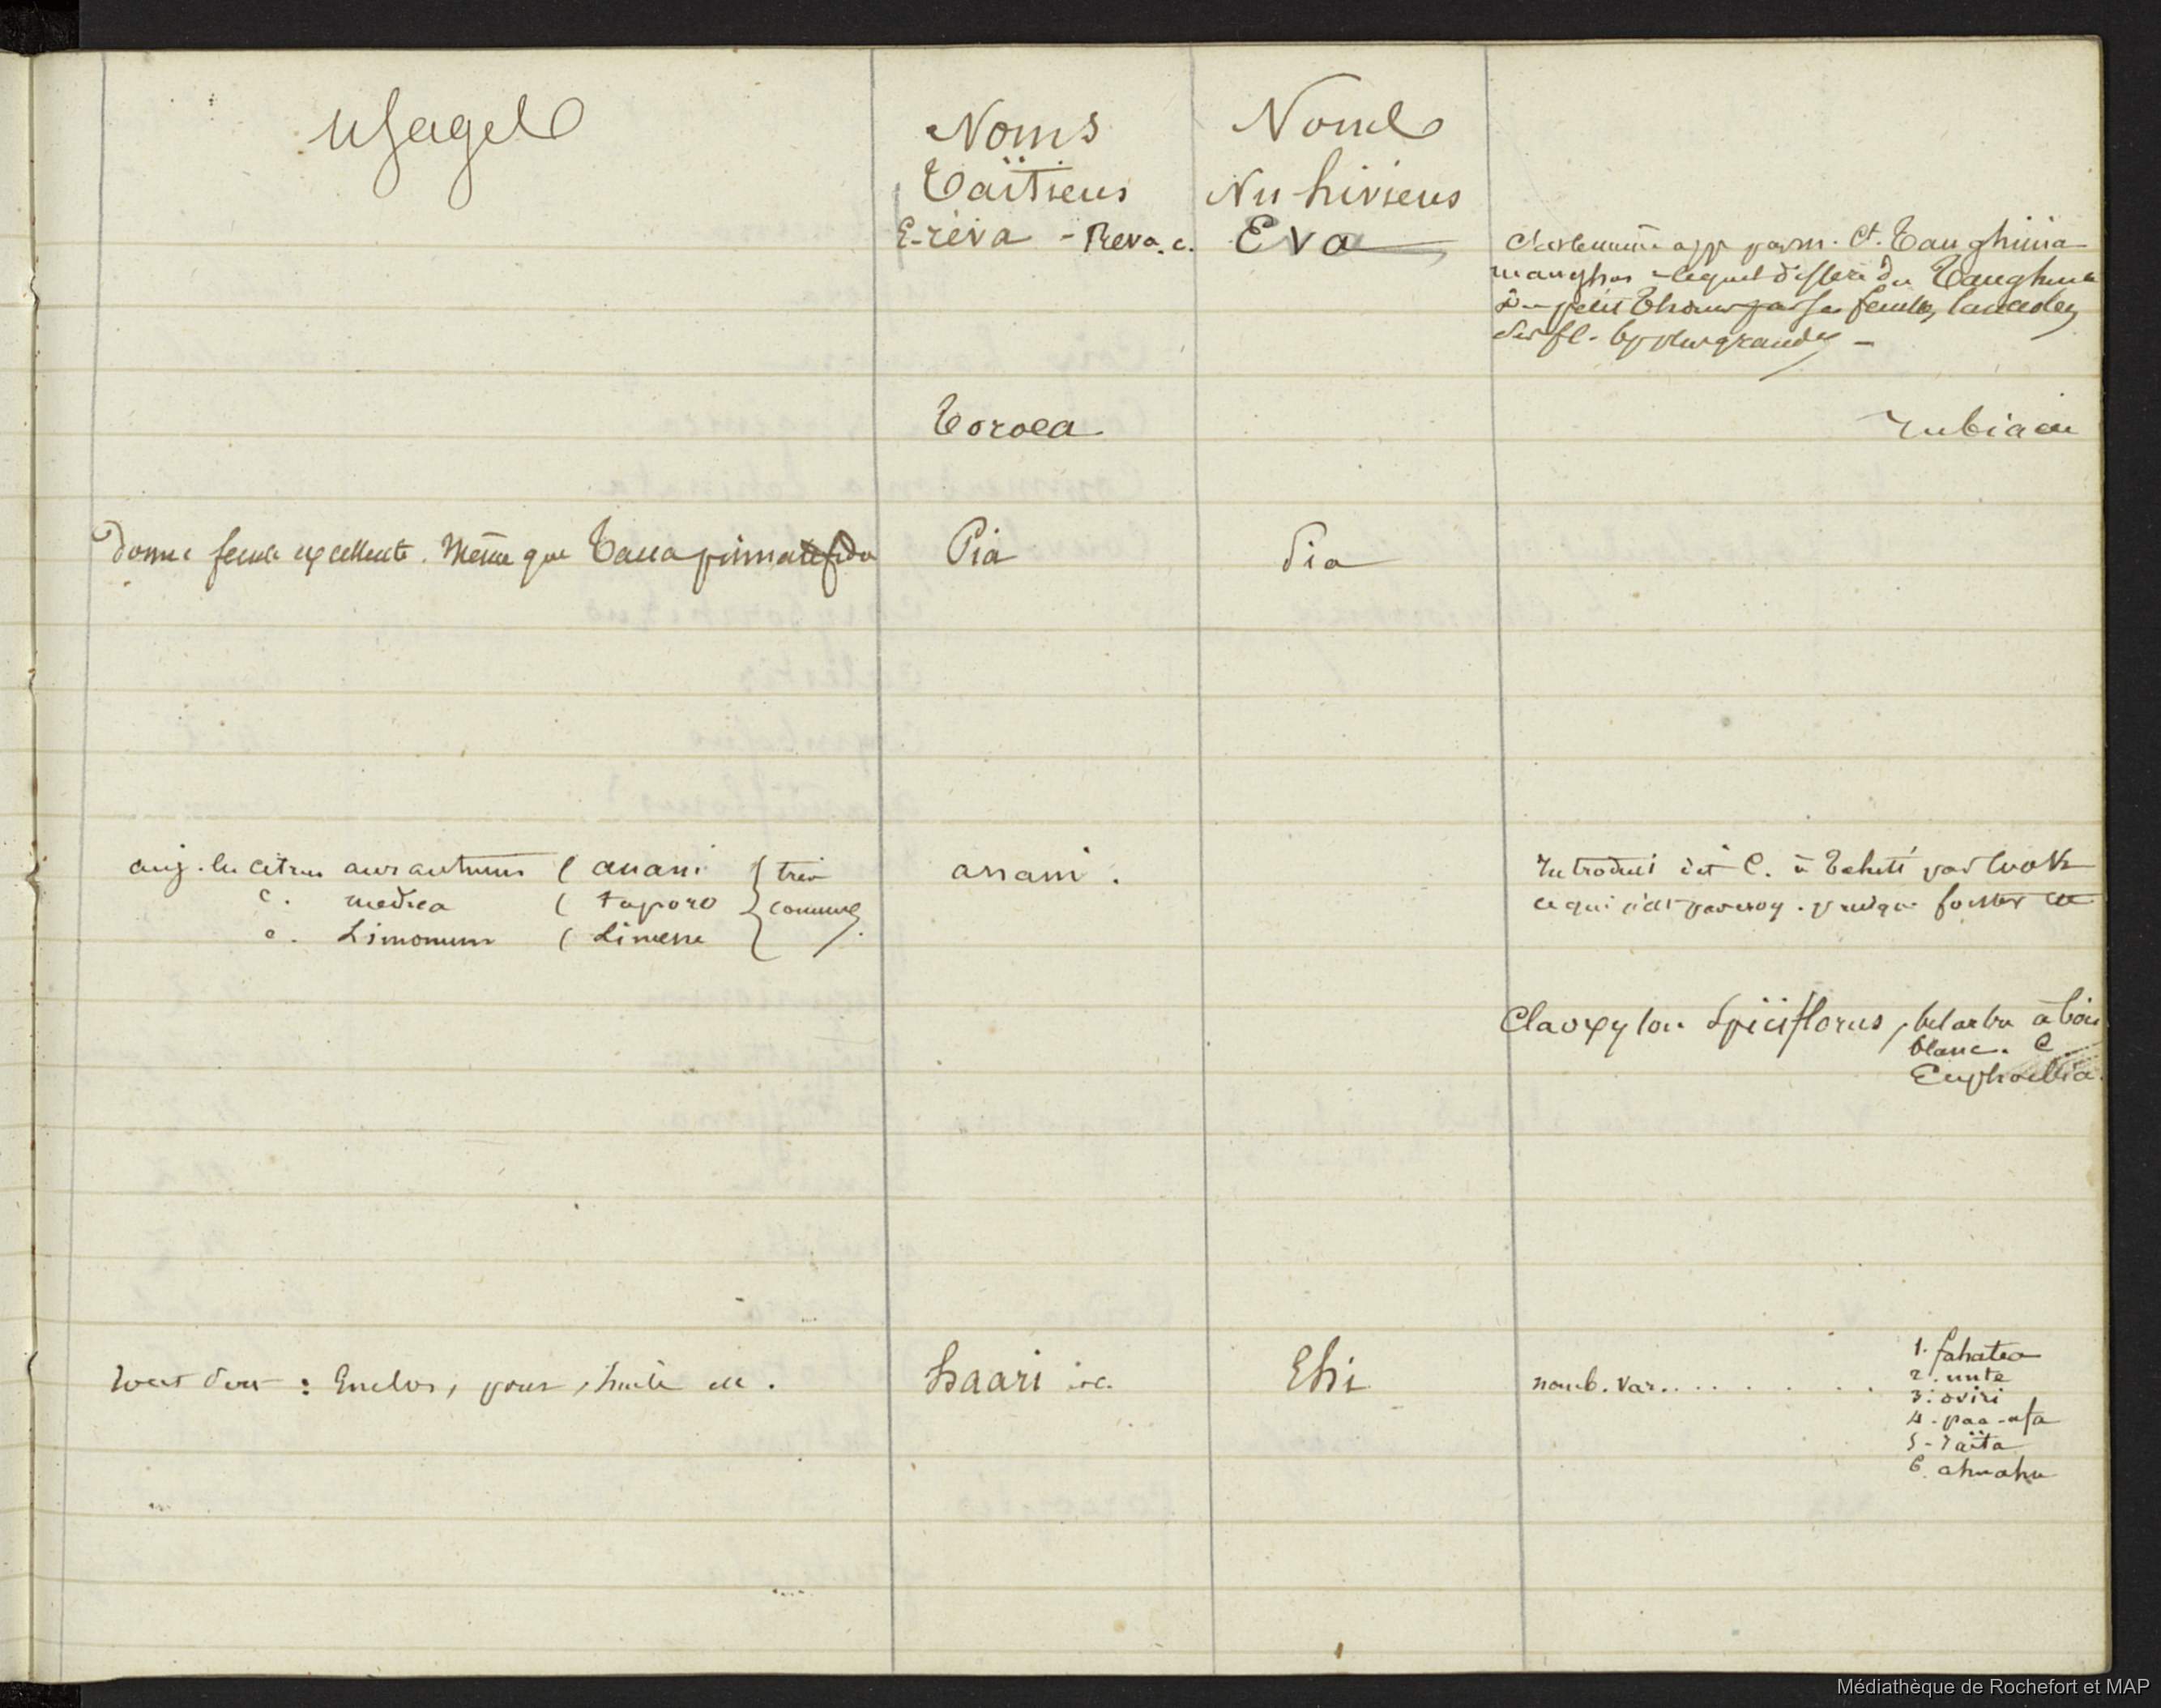 Usages
Noms
Taïtiens
Noms
Nu-hiviens
E-réva - Reva. c.
Eva
app par m. Ct. Tanghinia
manghas lequel diffère du Tanghinia
du petit Thouars par ses feuilles lancéolées
ses fl. bp plus grandes -
Toroea
rubiacée
Donne fecule excellente. Même que Tacca pinnatifida
Pia
Pia
auj. les citrus aurantium ( anani
c. medica ( taporo
c. Limonum ( Limene
très
communs
anani.
Introduit dit C. à Tahiti par Cook
ce qui n'est pas vrai. puisque forster
Claoxylon Spiciflorus, bel arbre à bois
blanc. C
Euphorbia.
tout sert : Enclos, pour, huile etc.
haari
Ehi
nomb. var. . . . . . . .
1. fahatea
2. unte
3. oviri
4. paa-afa
5 - raïta
6. ahuahu
Médiathèque de Rochefort et MAP